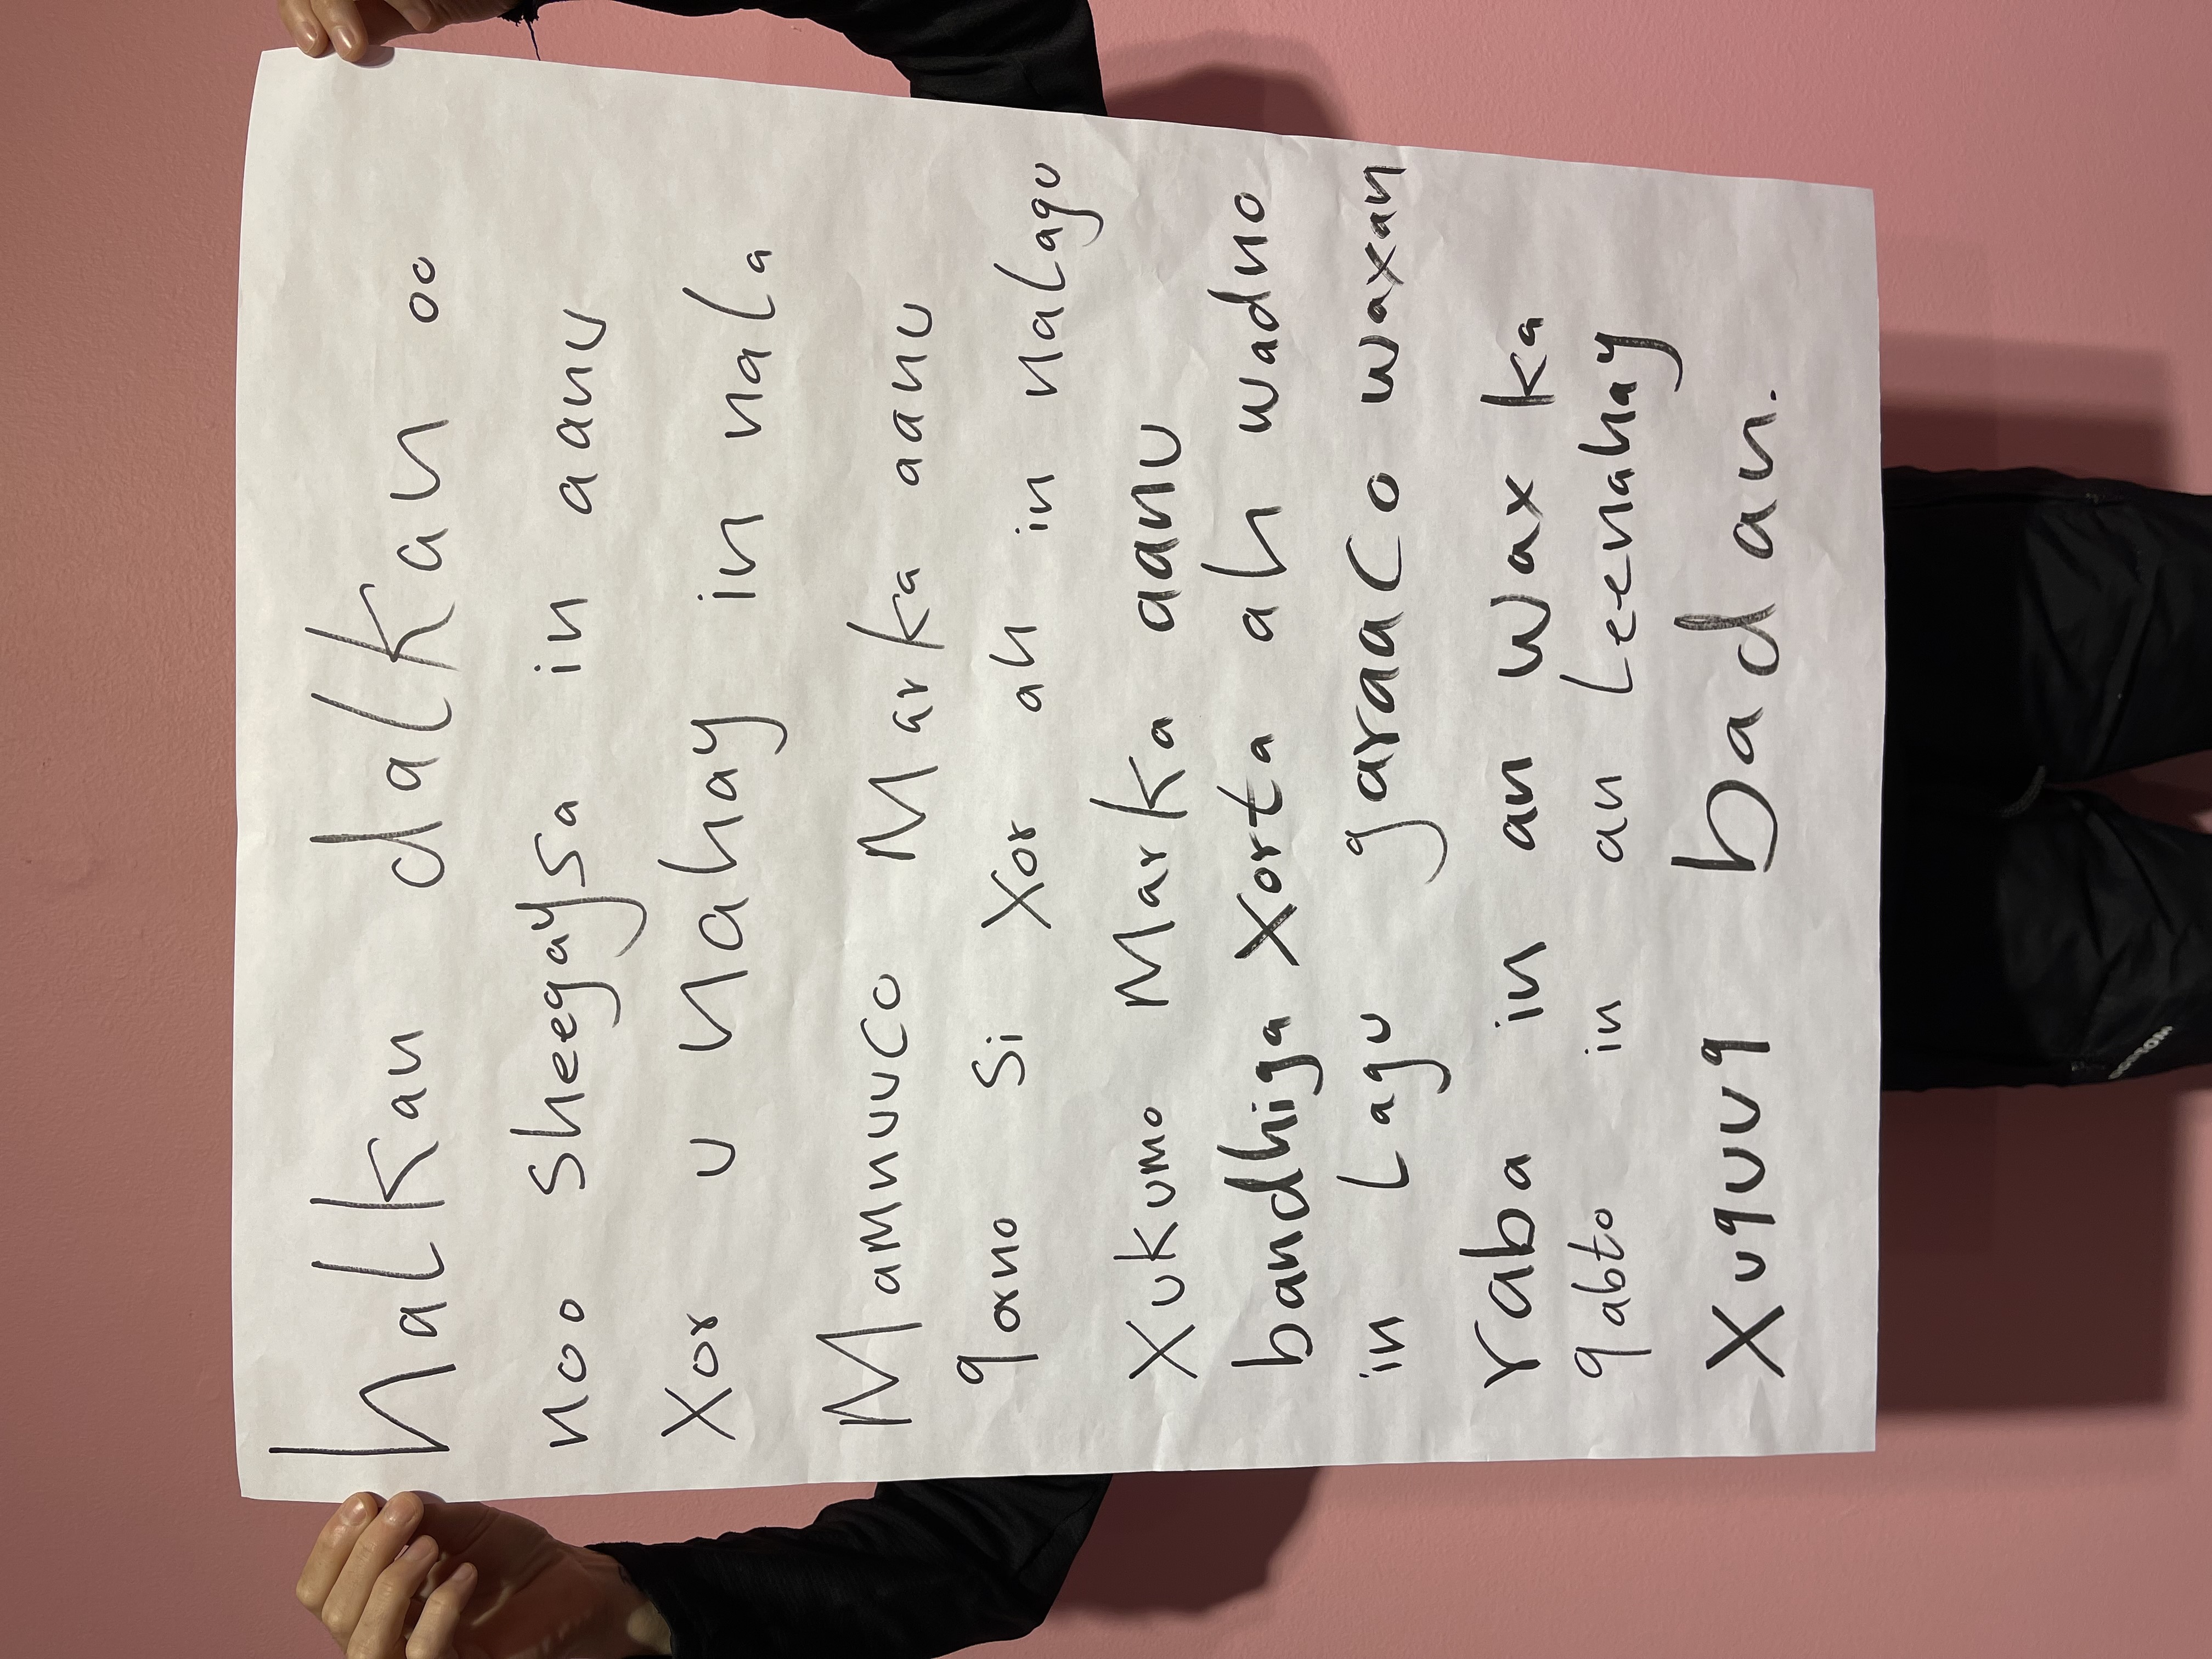 halkan dalkan oo
noo sheegaysa in aanu
Xor u Nahay in nala
Mamnuuco Marka aanu
qorno Si Xor ah in nalagu
Xukumo Marka aanu
bandhiga Xorta ah wadno
in Lagu garaaco waxan
raba in an wax ka
qabto in an Leenahay
Xuquuq badan.